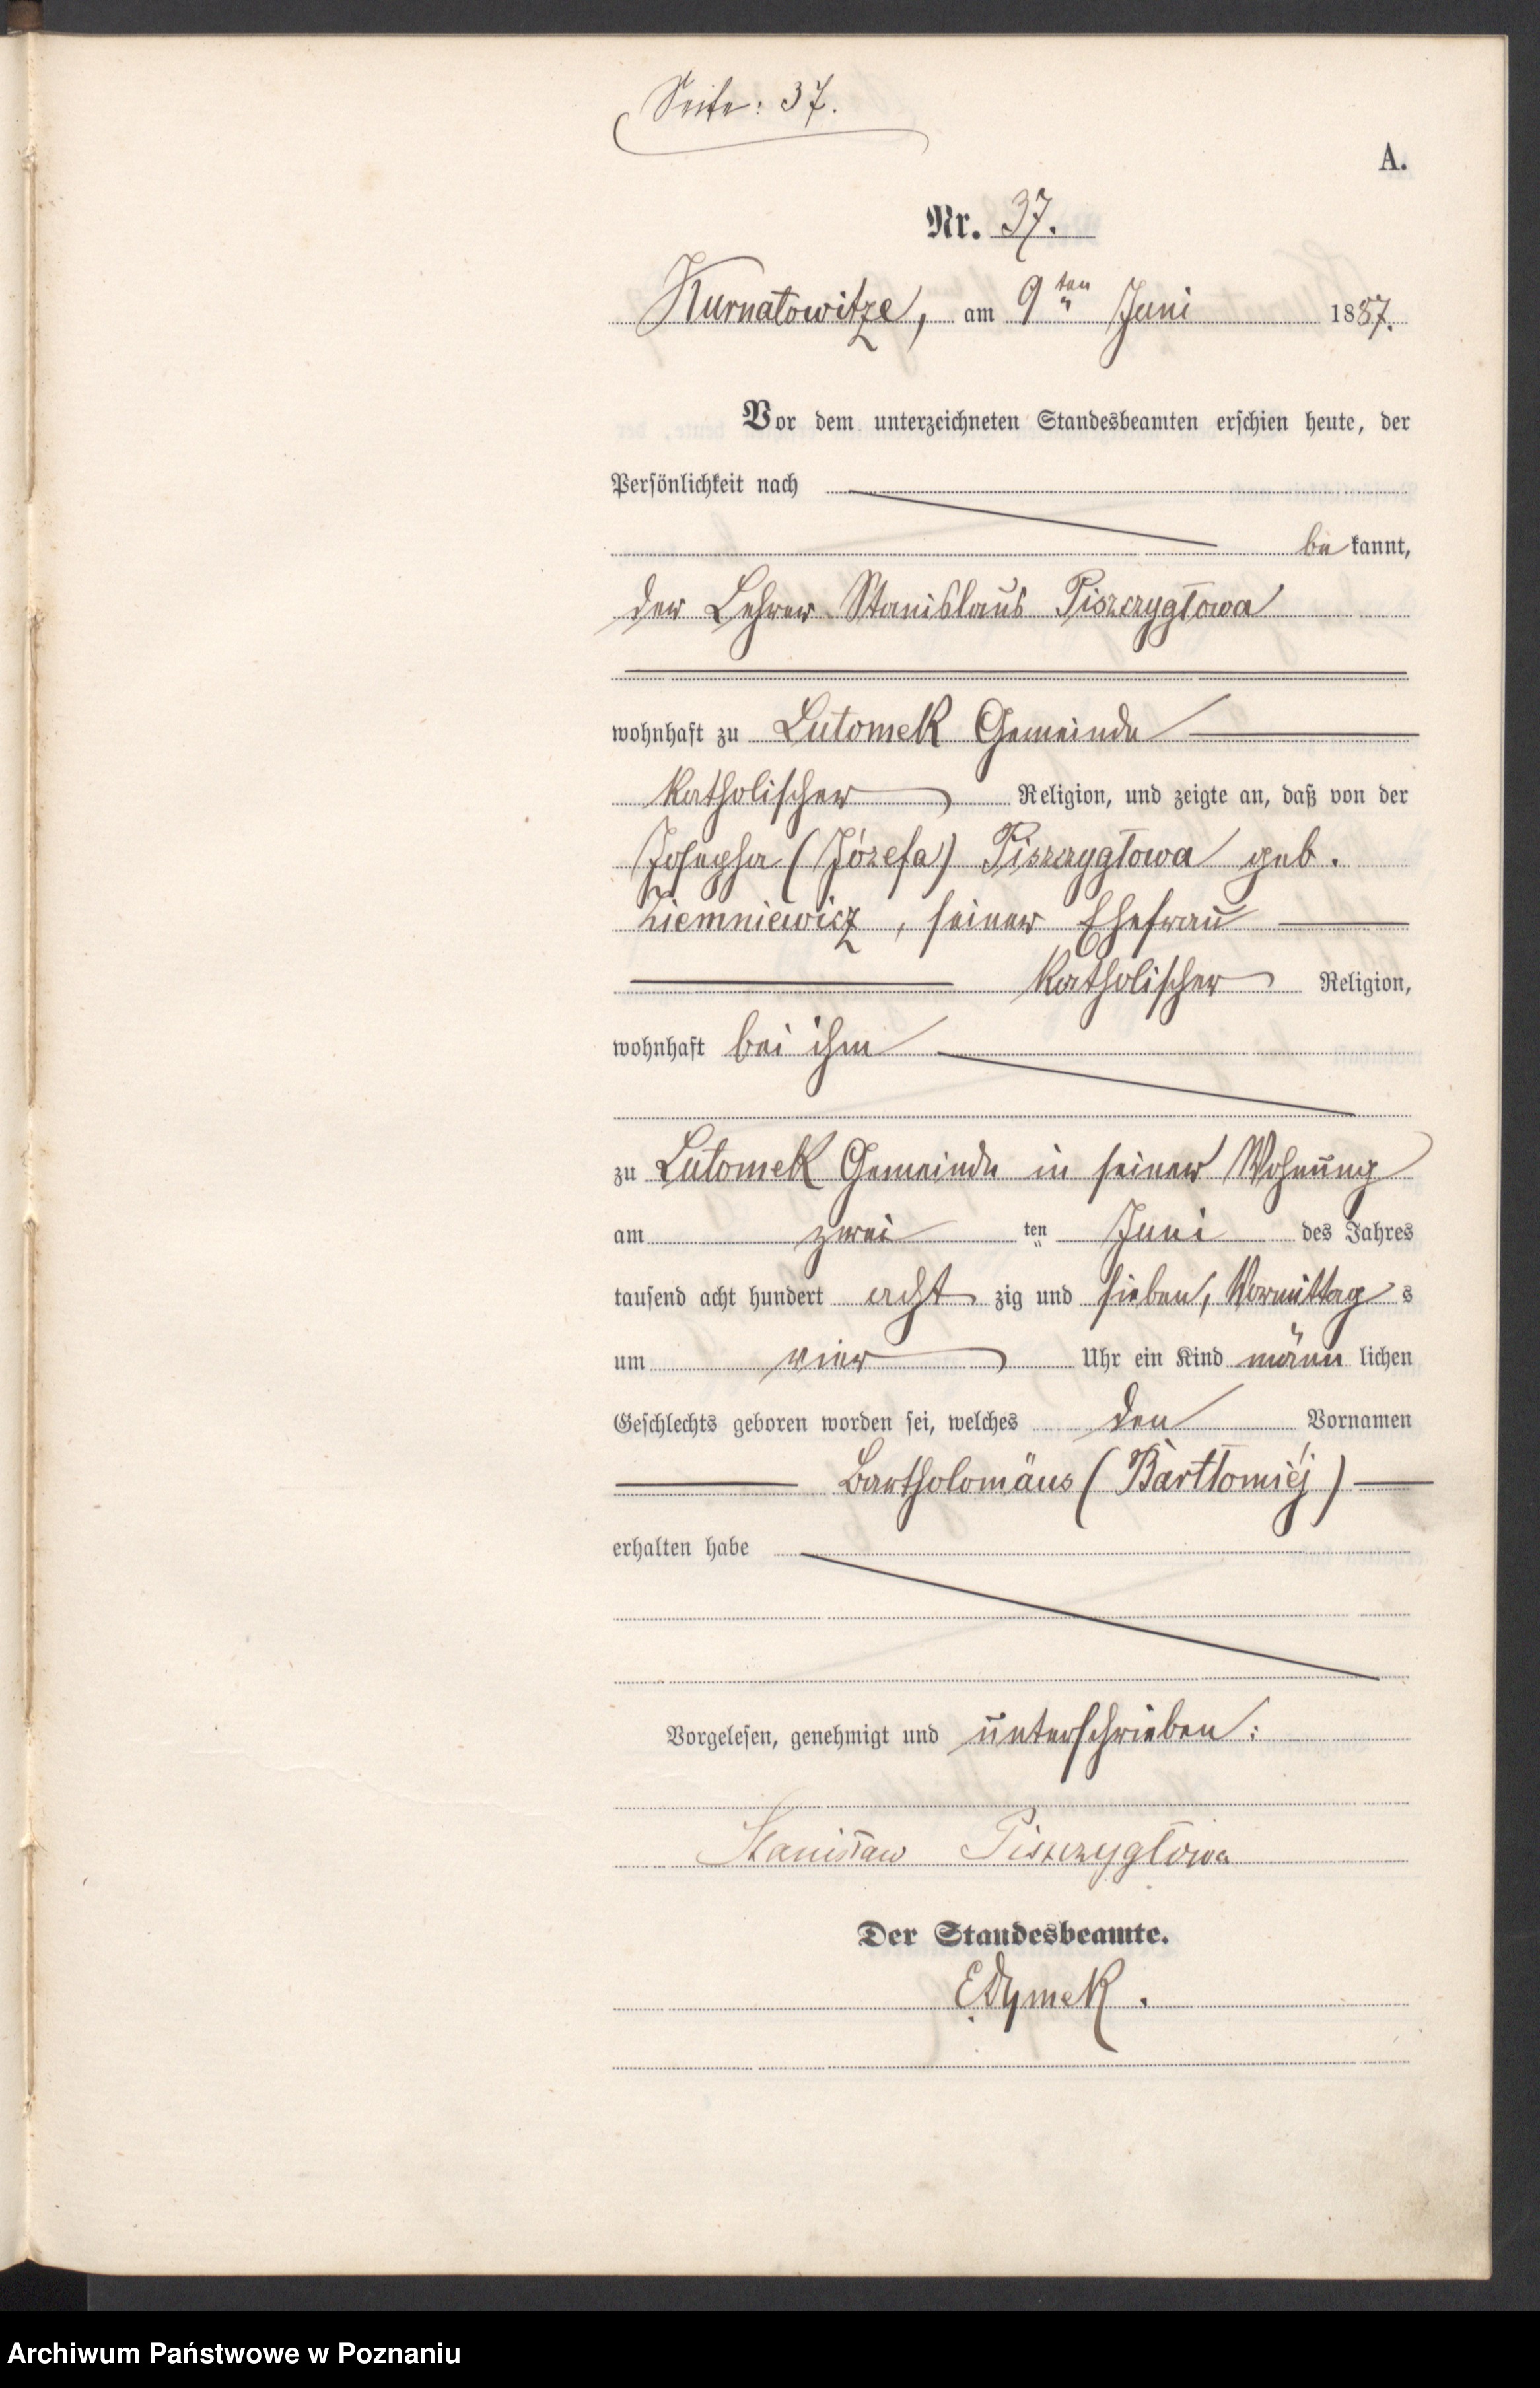 Seite: 37.
A.
Nr. 37.
Kurnatowitze, am 9ten Juni 1887.
Vor dem unterzeichneten Standesbeamten erschien heute, der
Persönlichkeit nach
bekannt,
der Lehrer Stanislaus Piszczygłowa
wohnhaft zu Lutomek Gemeinde
katholischer Religion, und zeigte an, daß von der
Josepha (Józefa) Piszczygłowa geb.
Ziemniewicz, seiner Ehefrau
katholischer Religion,
wohnhaft bei ihm
zu Lutomek Gemeinde in seiner Wohnung
am zwei ten Juni des Jahres
tausend acht hundert acht zig und sieben, Vormittags
um vier Uhr ein Kind männlichen
Geschlechts geboren worden sei, welches den Vornamen
Bartholomäus (Bartłomiéj)
erhalten habe
Vorgelesen, genehmigt und unterschrieben:
Stanisław Piszczygłowa
Der Standesbeamte.
Dymek.
Archiwum Państwowe w Poznaniu